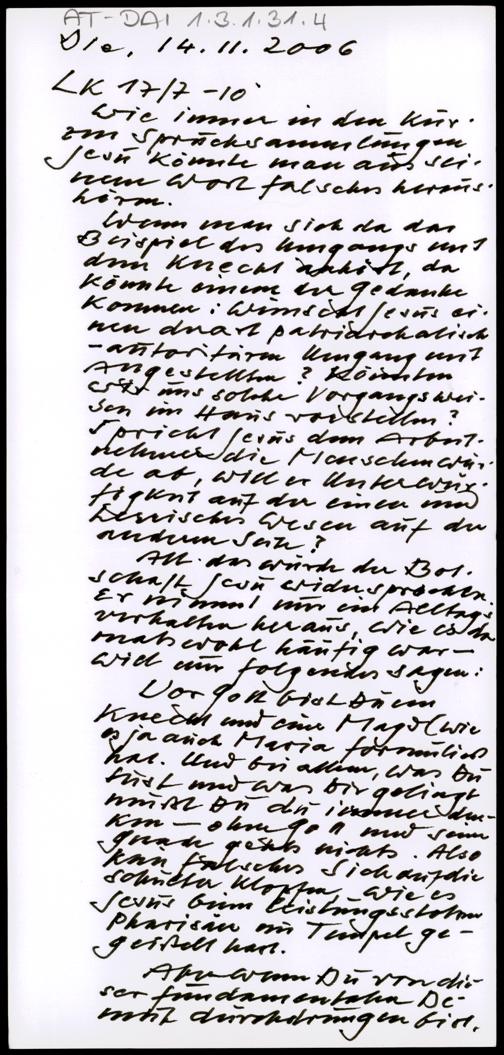 AT-DAI 1.3.1.31.4
Die, 14.11.2006
LK 17/7-10
Wie immer in den Kur-
zen Spruchsammlungen
Jesu könnte man aus sei-
nem Wort falsches heraus-
hören.
Wenn man sich da das
Beispiel des Umgangs mit
dem Knecht anhört, da
könnte einem der Gedanke
kommen: Wünscht Jesus ei-
nen derart patriarchalisch
-autoritären Umgang mit
Angestellten? Könnten
wir uns solche Vorgangswei-
sen im Haus vorstellen?
Spricht Jesus dem Arbeit-
nehmer die Menschenwür-
de ab, will er Unterwür-
figkeit auf der einen und
herrisches Wesen auf der
anderen Seite?
All das würde der Bot-
schaft Jesu widersprechen.
Er nimmt nur ein Alltags
verhalten heraus, wie es da
mals wohl häufig war -
will nur folgendes sagen:
Vor Gott bist Du ein
Knecht und eine Magd (wie
es ja auch Maria formuliert
hat. Und bei allem, was Du
tust und was Dir gelingt
mußt Du Dir immer den-
ken - ohne Gott und seine
Gnade geht nichts. Also
kein falsches Sich auf die
Schulter klopfen, wie es
Jesus beim leistungsstolzen
Pharisäer im Tempel ge-
geißelt hat.
Aber wenn Du von die-
ser fundamentalen De-
mut durchdrungen bist,